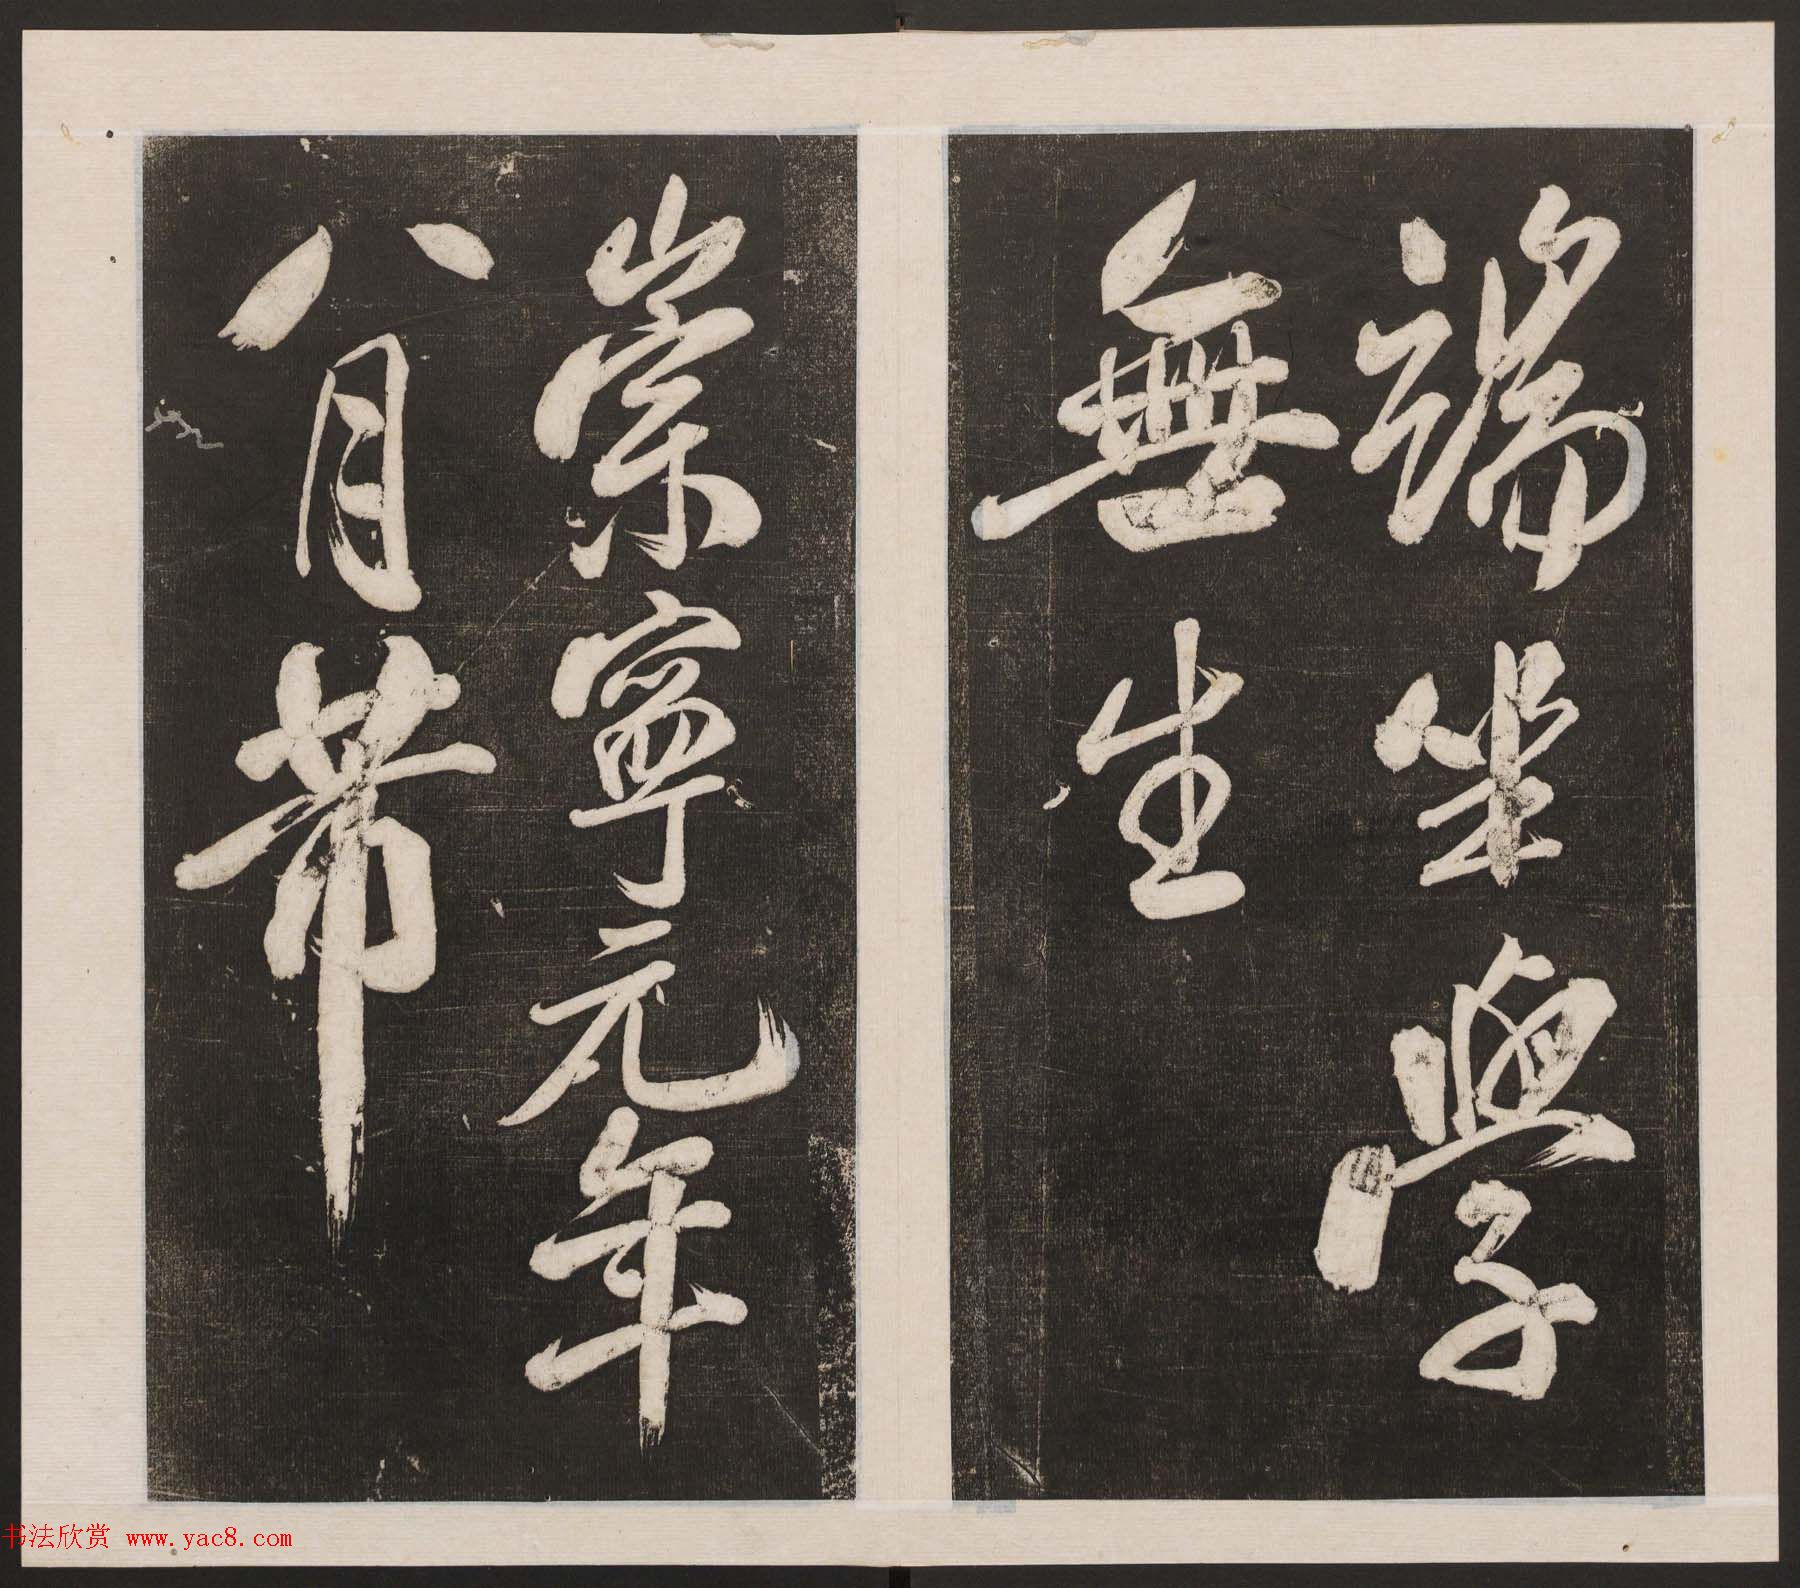 端坐學
無生
崇寧元年
八月芾
书法欣赏 www.yac8.com